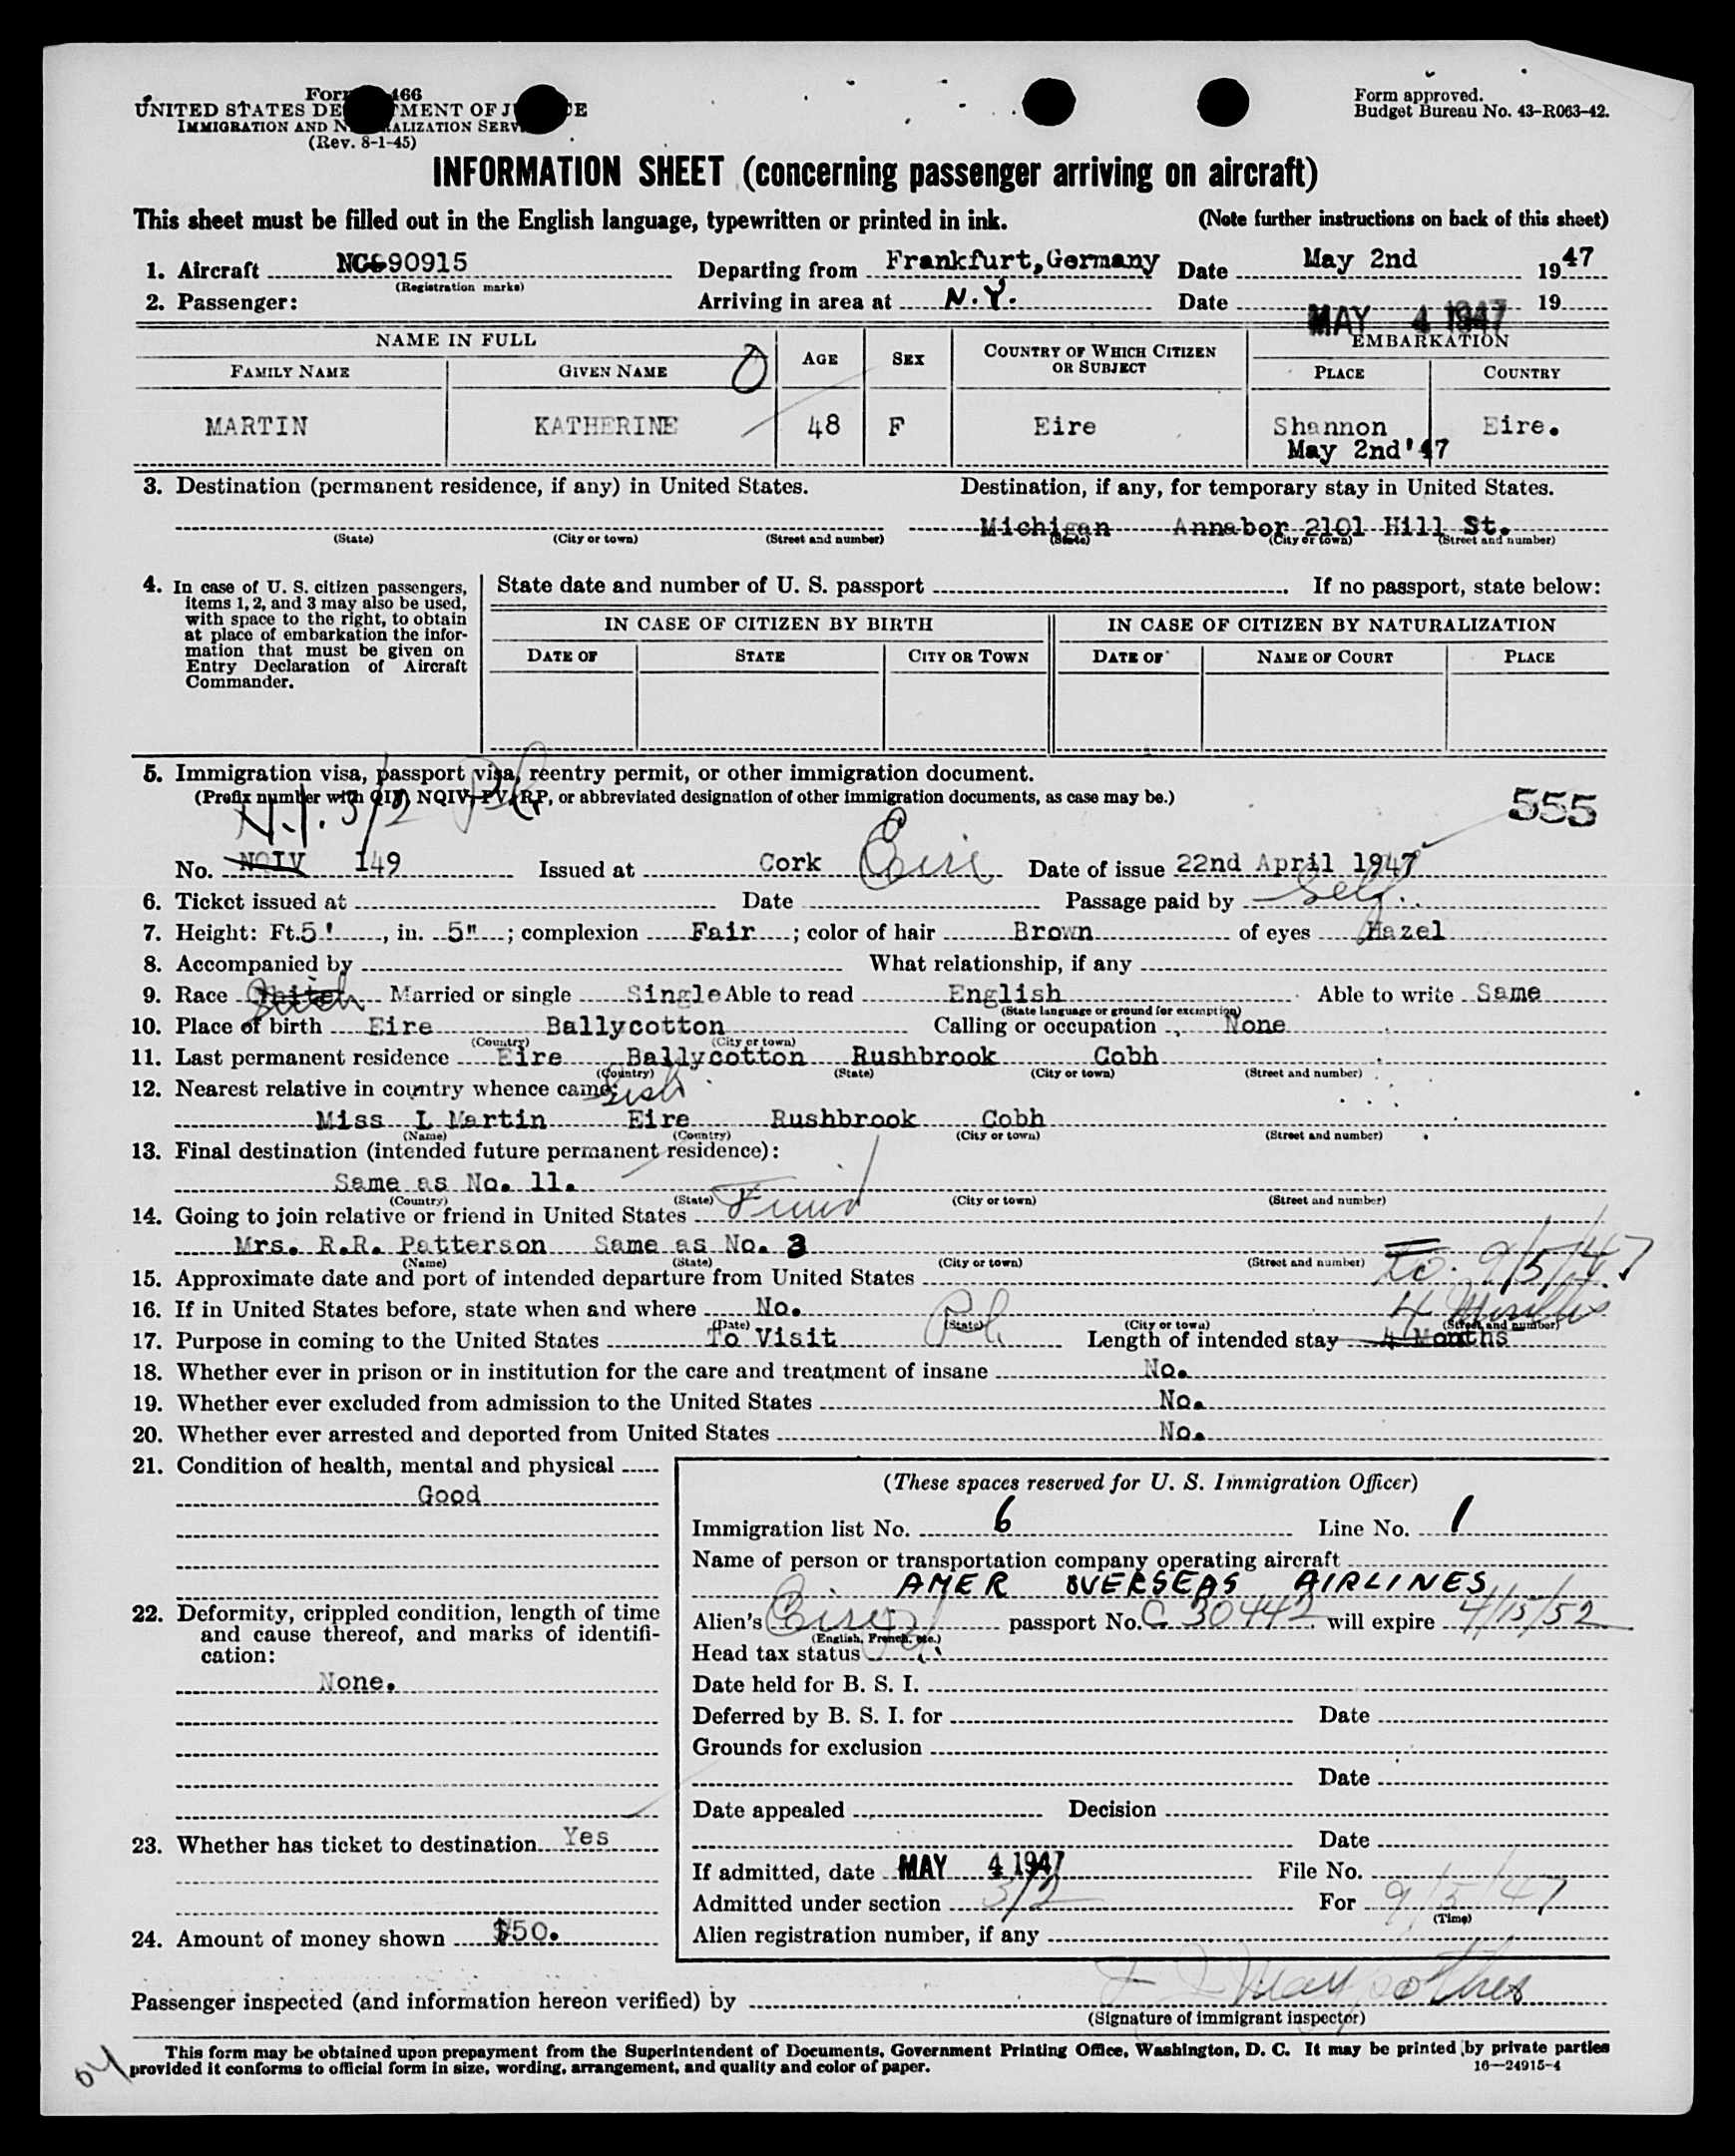 Form 466
UNITED STATES DEPARTMENT OF JUSTICE
IMMIGRATION AND NATURALIZATION SERVICE
(Rev. 8-1-45)
Form approved.
Budget Bureau No. 43-R063-42.
INFORMATION SHEET (concerning passenger arriving on aircraft)
This sheet must be filled out in the English language, typewritten or printed in ink. (Note further instructions on back of this sheet)
1. Aircraft NC 90915 Departing from Frankfurt, Germany Date May 2nd 1947
(Registration marks)
2. Passenger: Arriving in area at N.Y. Date MAY 4 1947 19
NAME IN FULL AGE SEX COUNTRY OF WHICH CITIZEN OR SUBJECT EMBARKATION
FAMILY NAME GIVEN NAME PLACE COUNTRY
MARTIN KATHERINE 48 F Eire Shannon Eire.
May 2nd'47
3. Destination (permanent residence, if any) in United States. Destination, if any, for temporary stay in United States.
Michigan Annabor 2101 Hill St.
(State) (City or town) (Street and number) (State) (City or town) (Street and number)
4. In case of U. S. citizen passengers, items 1, 2, and 3 may also be used, with space to the right, to obtain at place of embarkation the information that must be given on Entry Declaration of Aircraft Commander.
State date and number of U. S. passport If no passport, state below:
IN CASE OF CITIZEN BY BIRTH IN CASE OF CITIZEN BY NATURALIZATION
DATE OF STATE CITY OR TOWN DATE OF NAME OF COURT PLACE
5. Immigration visa, passport visa, reentry permit, or other immigration document.
(Prefix number with QIV, NQIV, PV, RP, or abbreviated designation of other immigration documents, as case may be.)
N.I. 3/2 555
No. NQIV 149 Issued at Cork Eire Date of issue 22nd April 1947
6. Ticket issued at Date Passage paid by Self
7. Height: Ft. 5' , in. 5" ; complexion Fair ; color of hair Brown of eyes Hazel
8. Accompanied by What relationship, if any
9. Race White Married or single Single Able to read English Able to write Same
(State language or ground for exemption)
10. Place of birth Eire Ballycotton Calling or occupation None
(Country) (City or town)
11. Last permanent residence Eire Ballycotton Rushbrook Cobh
(Country) (State) (City or town) (Street and number)
12. Nearest relative in country whence came:
Miss L Martin Eire Rushbrook Cobh
(Name) (Country) (City or town) (Street and number)
13. Final destination (intended future permanent residence):
Same as No. 11.
(Country) (State) (City or town) (Street and number)
14. Going to join relative or friend in United States Friend
Mrs. R.R. Patterson Same as No. 3
(Name) (State) (City or town) (Street and number)
15. Approximate date and port of intended departure from United States 9/5/47
16. If in United States before, state when and where No. 4 Months
(Date) (State) (City or town) (Street and number)
17. Purpose in coming to the United States To Visit Length of intended stay 4 Months
18. Whether ever in prison or in institution for the care and treatment of insane No.
19. Whether ever excluded from admission to the United States No.
20. Whether ever arrested and deported from United States No.
21. Condition of health, mental and physical
Good
22. Deformity, crippled condition, length of time and cause thereof, and marks of identification:
None.
23. Whether has ticket to destination Yes
24. Amount of money shown $50.
(These spaces reserved for U. S. Immigration Officer)
Immigration list No. 6 Line No. 1
Name of person or transportation company operating aircraft
AMER OVERSEAS AIRLINES
Alien's Eire passport No. C 30442 will expire 4/15/52
(English, French, etc.)
Head tax status
Date held for B. S. I.
Deferred by B. S. I. for Date
Grounds for exclusion
Date
Date appealed Decision
Date
If admitted, date MAY 4 1947 File No.
Admitted under section 3/2 For 9/5/47
(Time)
Alien registration number, if any
Passenger inspected (and information hereon verified) by
(Signature of immigrant inspector)
This form may be obtained upon prepayment from the Superintendent of Documents, Government Printing Office, Washington, D. C. It may be printed by private parties
provided it conforms to official form in size, wording, arrangement, and quality and color of paper.
16—24915-4